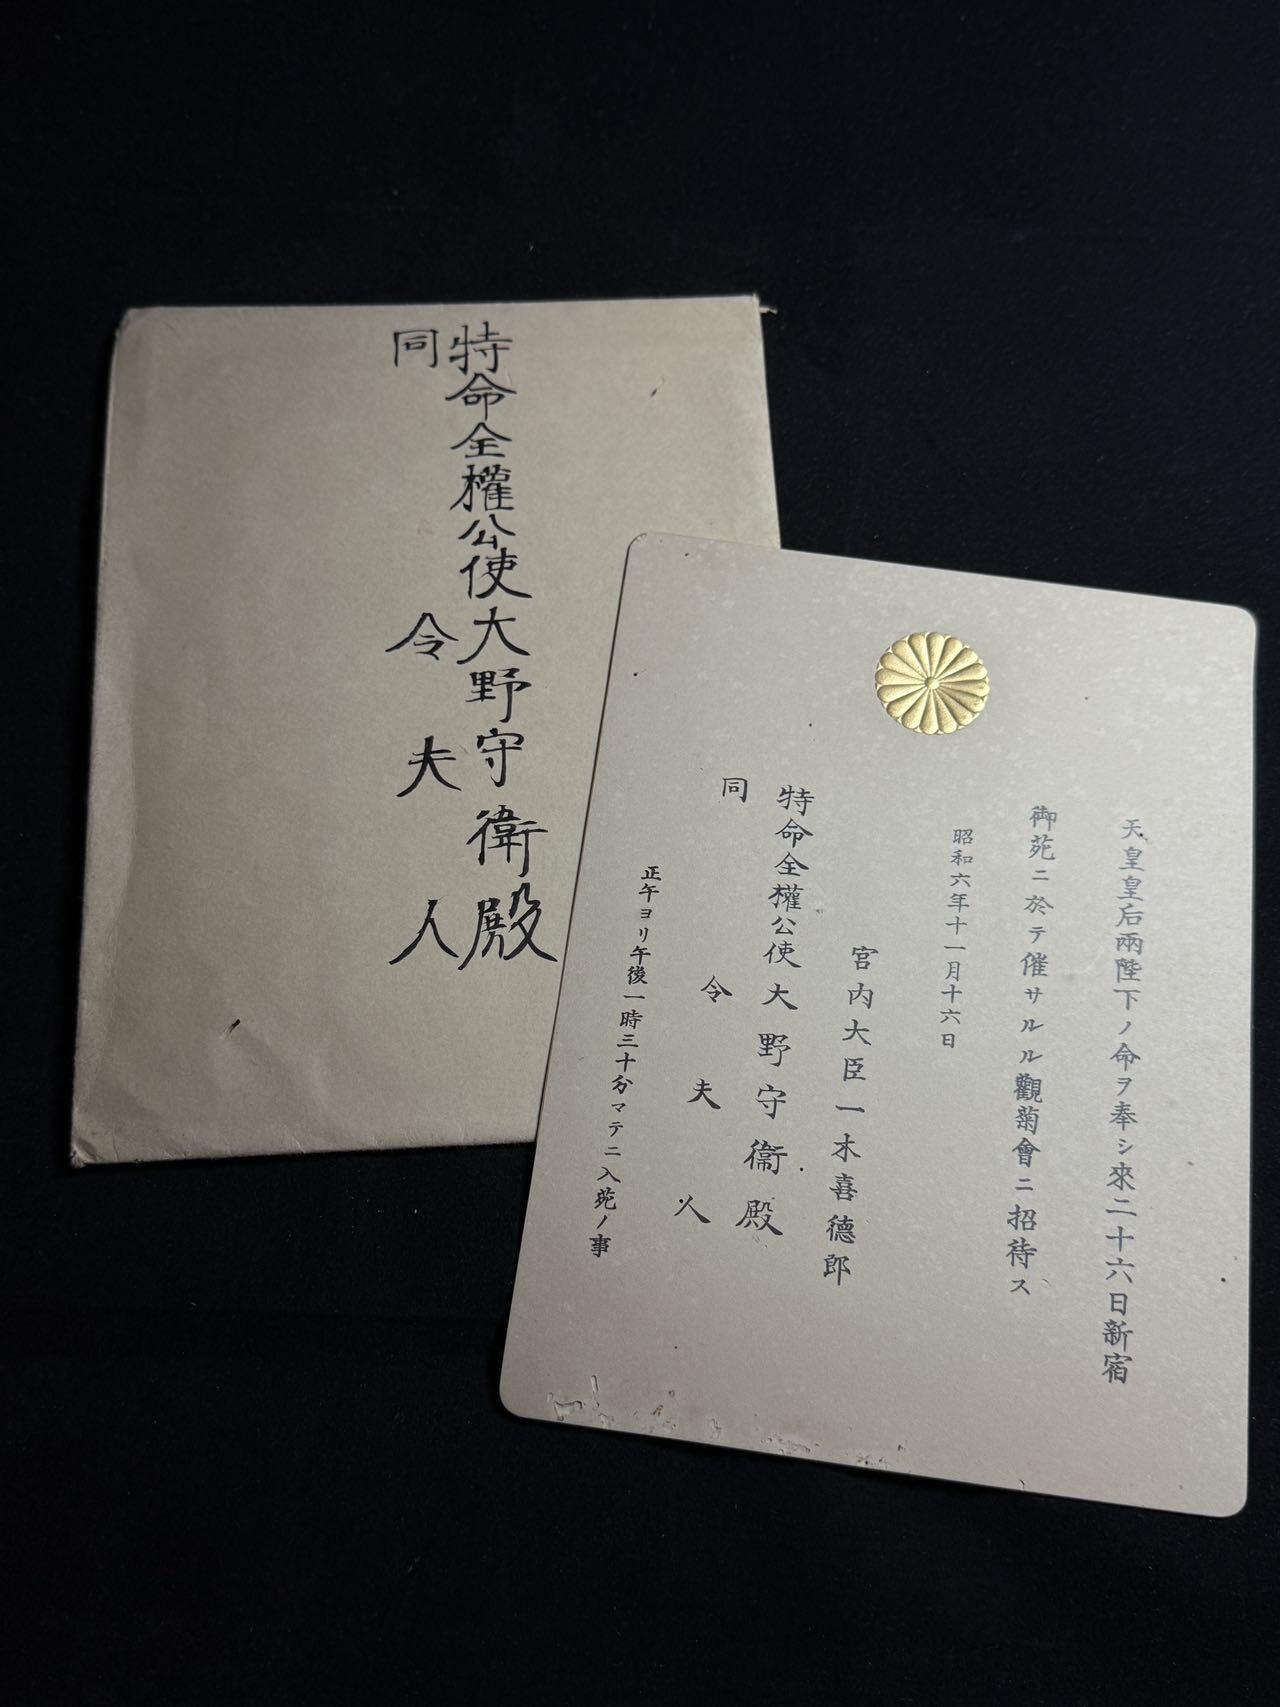 特命全權公使大野守衛殿
同令夫人
天皇皇后兩陛下ノ命ヲ奉シ來二十六日新宿
御苑ニ於テ催サルル觀菊會ニ招待ス
昭和六年十一月十六日
宮内大臣一木喜德郎
特命全權公使大野守衞殿
同令夫人
正午ヨリ午後一時三十分マテニ入苑ノ事